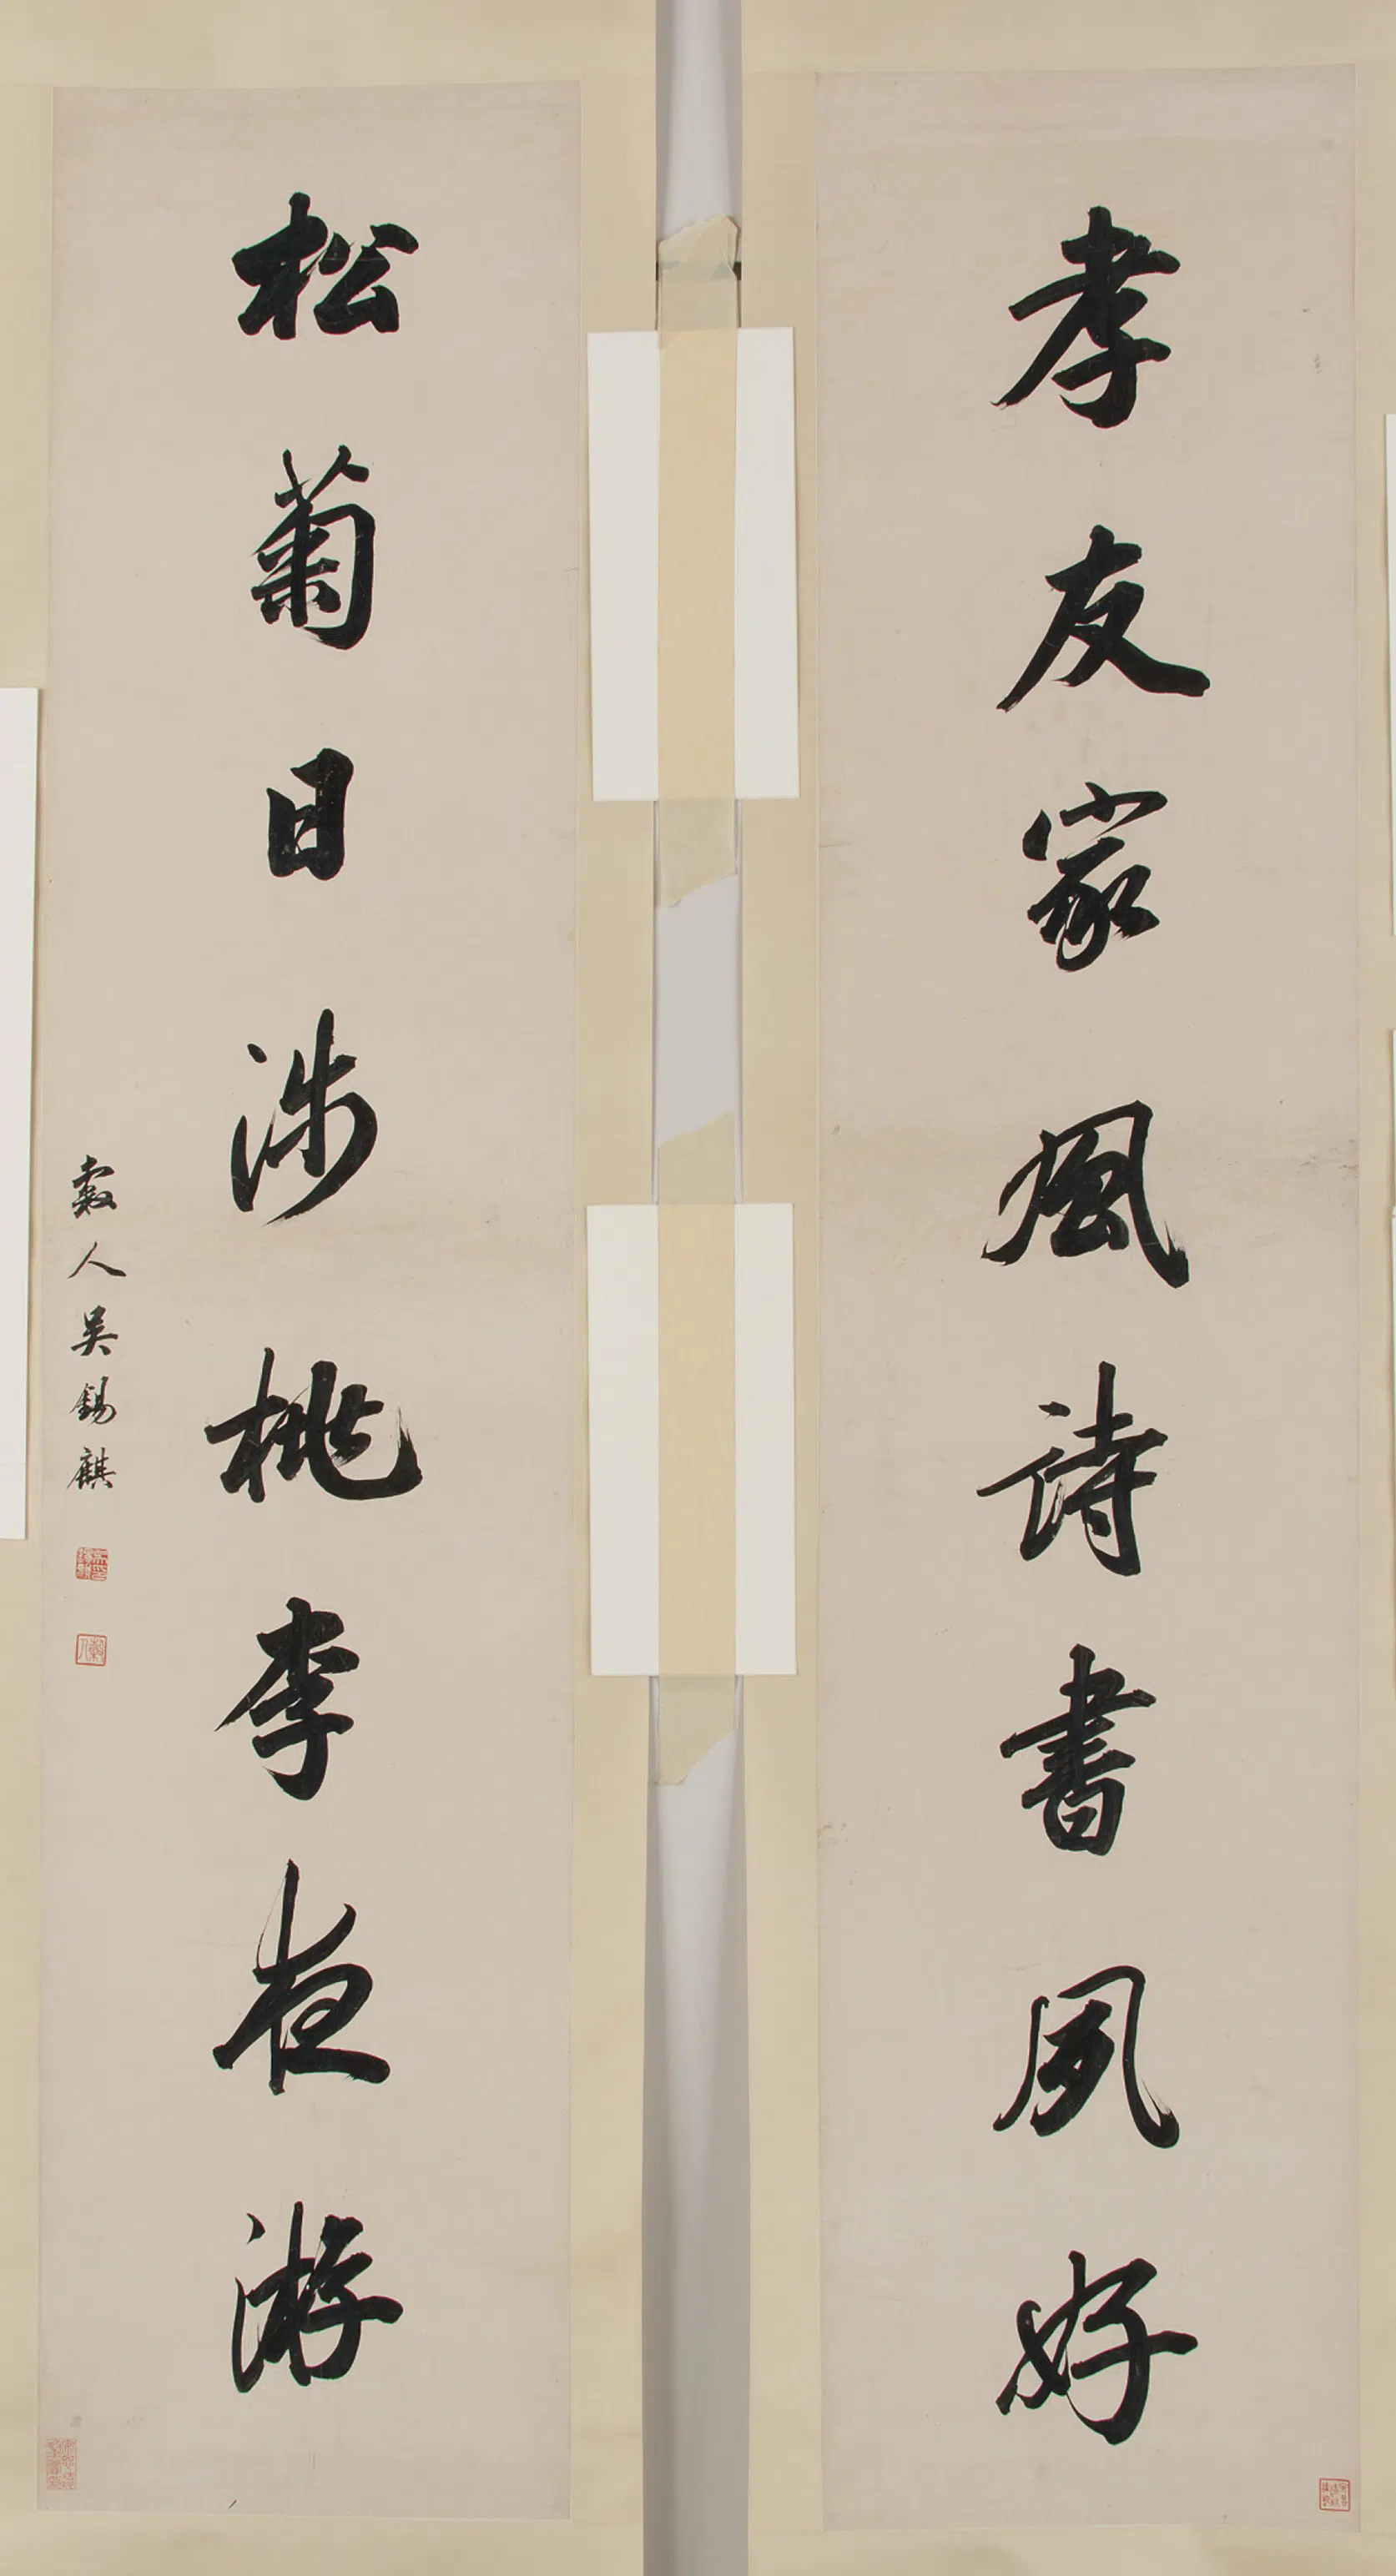 孝友家風詩書夙好
松菊日涉桃李夜游
穀人吳錫麒